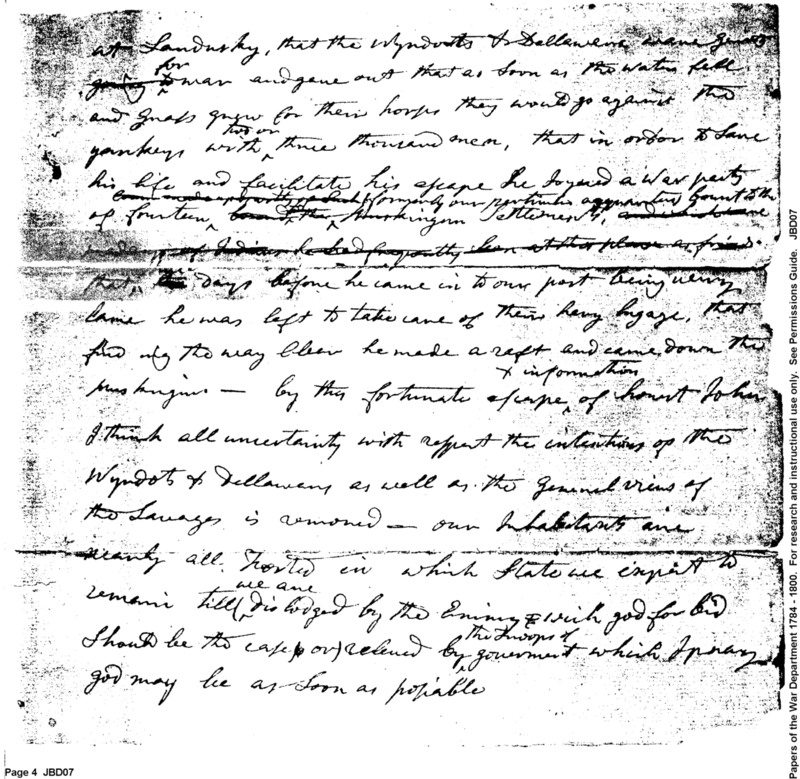 at Sandusky, that the Wyndotts & Dellawens weare
for
war and gave out that as Soon as the waters fell
and Grass grew for their horses they would go against the
yankeys with two or three thousand men, that in order to Save
his life and facilitate his escape he Joyned a War party
formerly our particular bound to the
of fourteen Muskingum Settlements,
that days before he came in to our post being very
lame he was left to take care of their hevy bagage, that
find ing the way Clear he made a raft and came down the
& information
Muskingum — by this fortunate escape of honest John
I think all uncertainty with respect the intentions of the
Wyndots & Dellawens as well as the General views of
the Savages is removed — our Inhabitants are
nearly all Forted in which State we expect to
we are
remain till dislodged by the Enimy which god for bid
the Troops of
Should be the case or releved by goverment which I pray
god may be as Soon as posiable
Page 4 JBD07
Papers of the War Department 1784 - 1800. For research and instructional use only. See Permissions Guide. JBD07